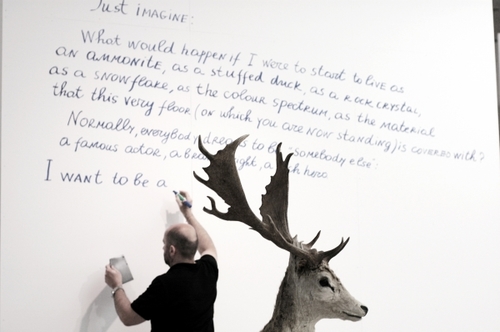 Just imagine:
What would happen if I were to start to live as
an ammonite, as a stuffed duck, as a rock crystal,
as a snowflake, as the colour spectrum, as the material
that this very floor (on which you are now standing) is covered with?
Normally, everybody dreams to be 'somebody else':
a famous actor, a
I want to be a